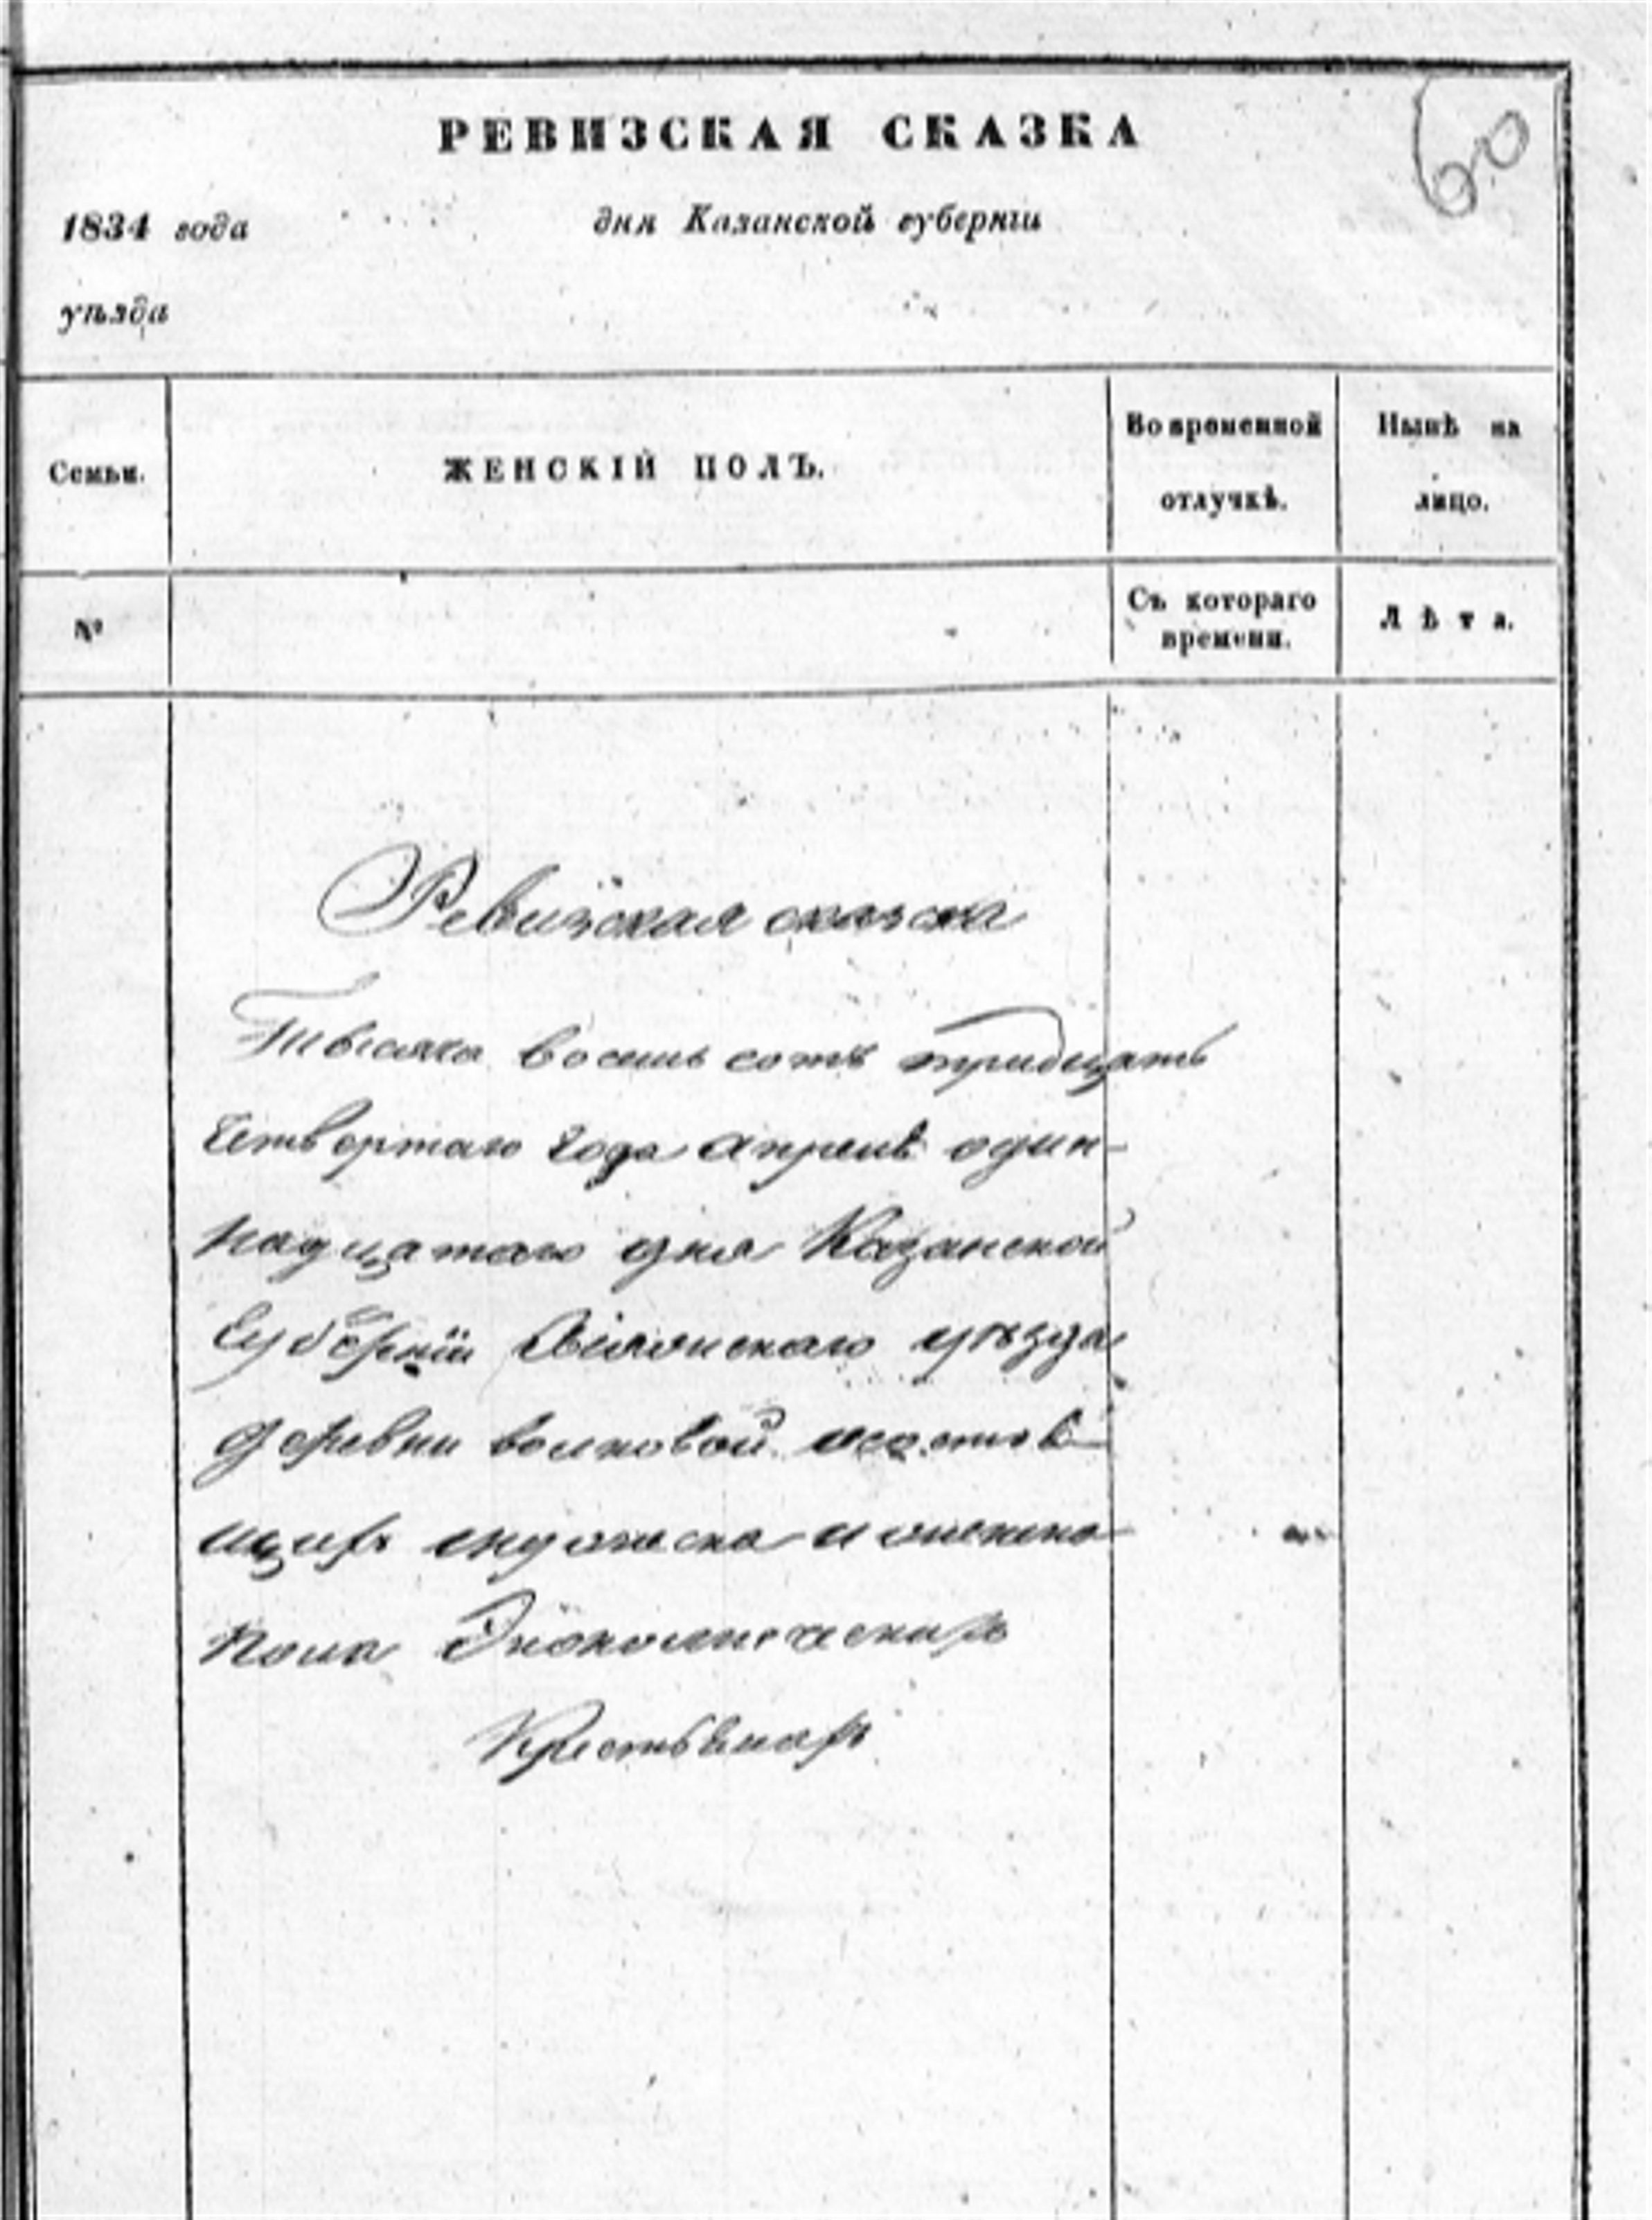 РЕВИЗСКАЯ СКАЗКА
60
1834 года дня Казанской губерніи
уѣзда
Семьи. ЖЕНСКІЙ ПОЛЪ. Во временной отлучкѣ. Нынѣ на лицо.
№ Съ котораго времени. Лѣта.
Ревизская сказка
Тысяча восемь сотъ тридцать
Четвертаго года апреля один-
надцатаго дня Казанской
Губерніи уѣзда
деревни волковой состоя-
щихъ мужеска и женска
пола Экономическихъ
Крестьянахъ